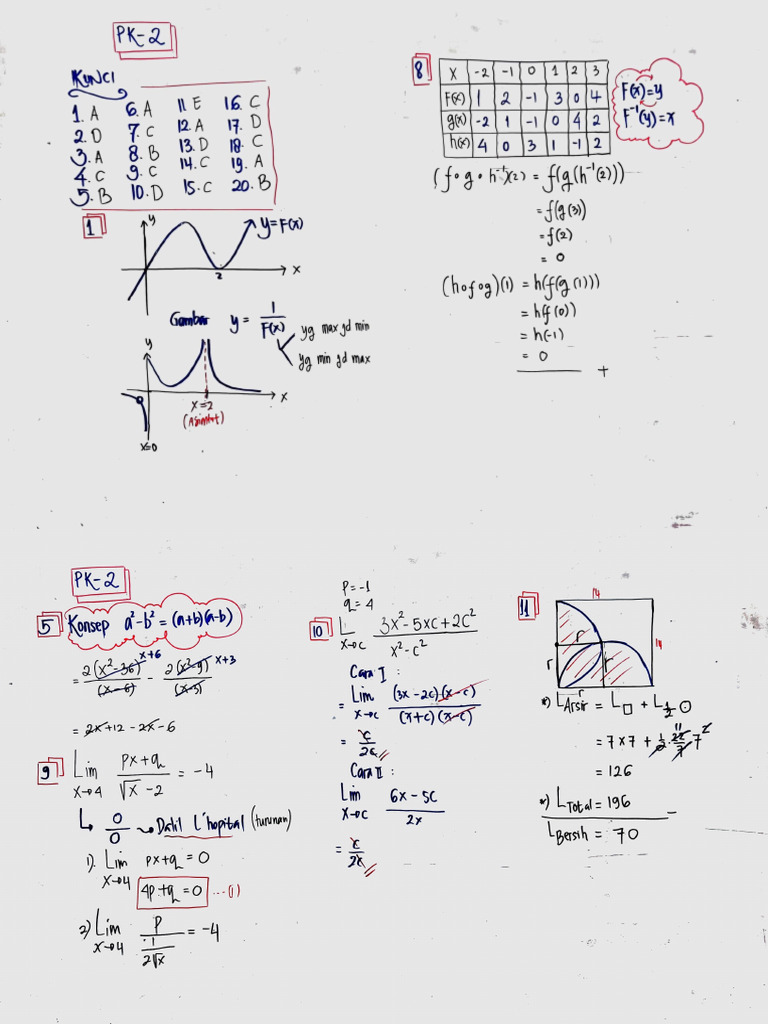 PK-2
KUNCI
1. A 6. A 11. E 16. C
2. D 7. C 12. A 17. D
3. A 8. B 13. D 18. C
4. C 9. C 14. C 19. A
5. B 10. D 15. C 20. B
1
y
y=F(x)
x
2
Gambar y = 1/F(x)
yg max jd min
yg min jd max
y
x
x=2
(Asimtot)
x=0
8
x -2 -1 0 1 2 3
F(x) 1 2 -1 3 0 4
g(x) -2 1 -1 0 4 2
h(x) 4 0 3 1 -1 2
F(x)=y
F⁻¹(y)=x
(f∘g∘h⁻¹)(2) = f(g(h⁻¹(2)))
= f(g(3))
= f(2)
= 0
(h∘f∘g)(1) = h(f(g(1)))
= h(f(0))
= h(-1)
= 0
+
PK-2
5 Konsep a²-b² = (a+b)(a-b)
= 2(x²-36)/(x-6) - 2(x²-9)/(x-3)
x+6 x+3
= 2x+12-2x-6
9 Lim x→4 px+q/√x-2 = -4
↳ 0/0 → Dalil L'hopital (turunan)
1). Lim x→4 px+q = 0
4p+q=0 ...(1)
2) Lim x→4 p/(1/2√x) = -4
p=-1
q=4
10 L x→c 3x²-5xc+2c²/x²-c²
Cara I :
= Lim x→c (3x-2c)(x-c)/(x+c)(x-c)
= c/2c
Cara II :
Lim x→c 6x-5c/2x
= x/2x
11
14
14
r
r
r
r
*) L Arsir = L□ + L½○
= 7×7 + ½·22/7·7²
11
= 126
*) L Total = 196
L Bersih = 70